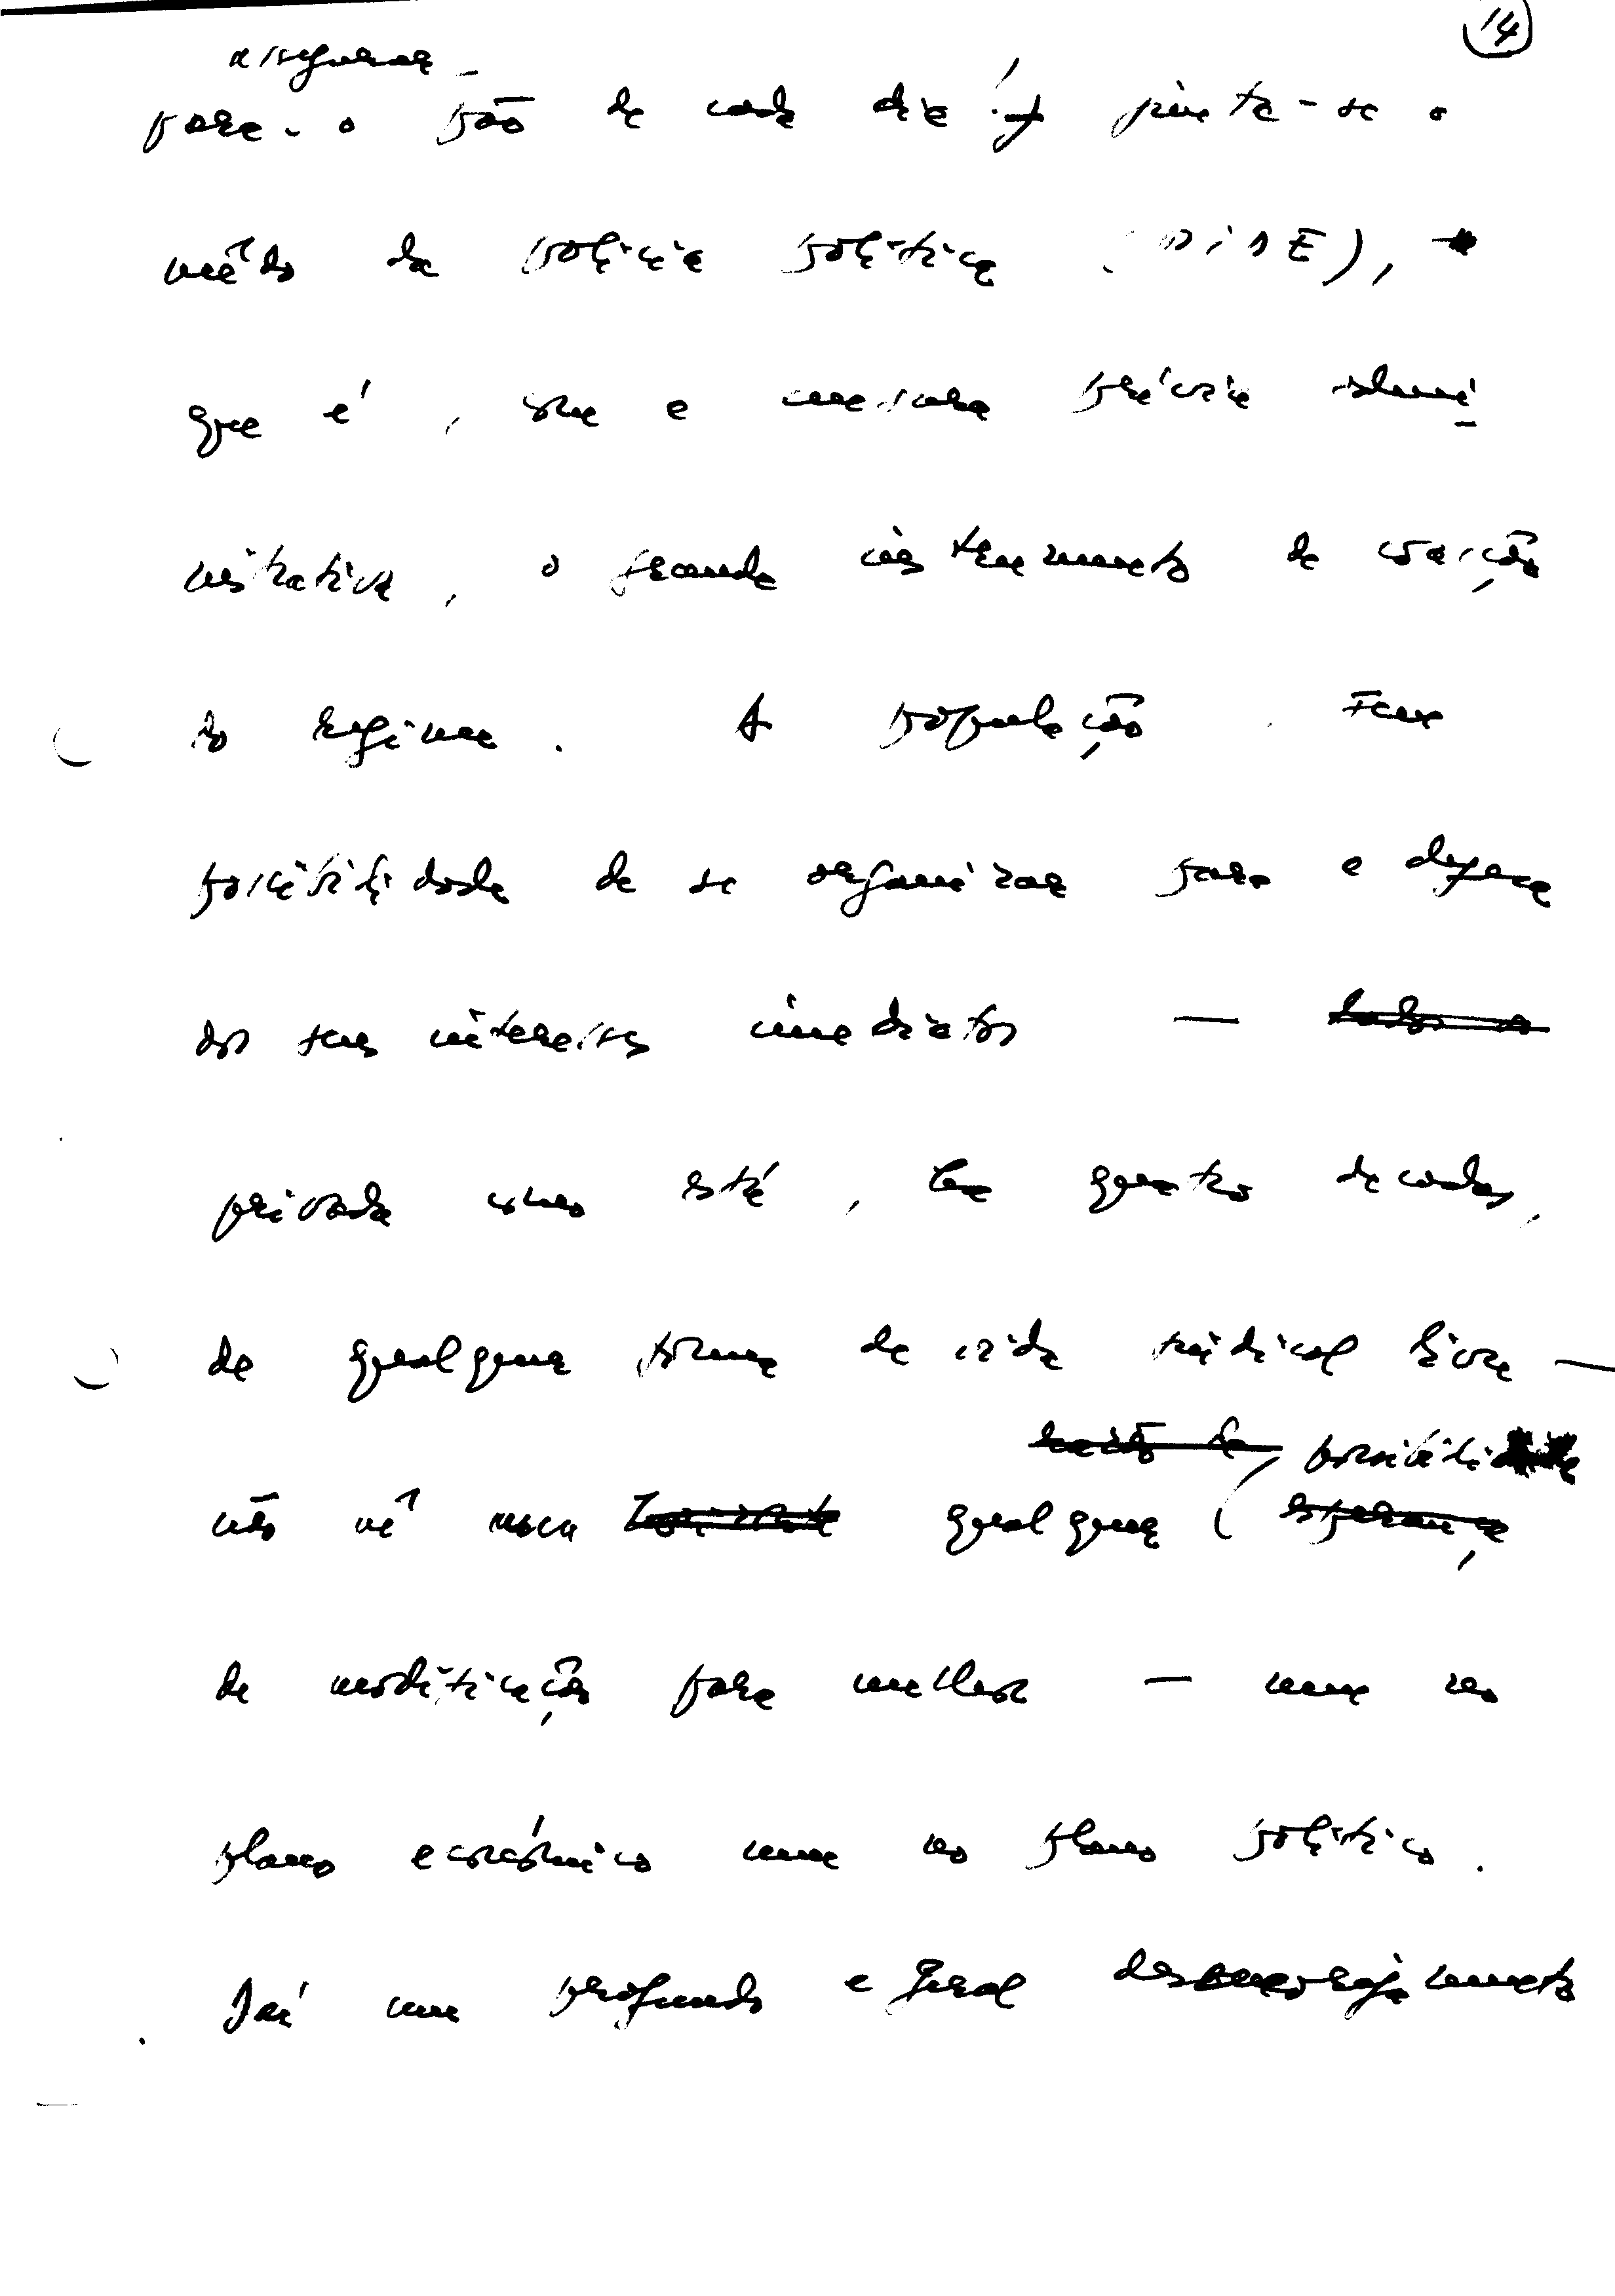 14
assegurar
para o pão de cada dia! junta-se o
mêdo da polícia política (PIDE),
que é, com a censura prévia admi-
nistrativa, o grande instrumento de coacção
do regime. A população sem
possibilidade de se organizar para a defesa
dos seus interesses imediatos —
privada como está, há quatro decadas,
de qualquer forma de vida sindical livre —
possibilidade
não vê qualquer esperança
de modificação para melhor — nem no
plano económico nem no plano político.
Daí um profundo e geral desencorajamento